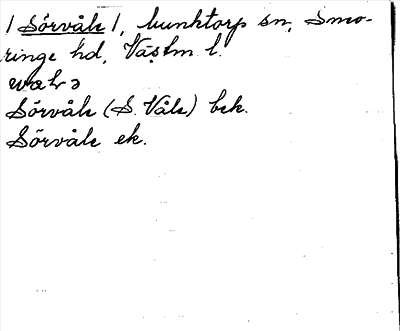 / Sörvåle /, Munktorp sn, Snev-
ringe hd, Västm l.
Sörvåle (S. Våle) bek.
Sörvåle ek.